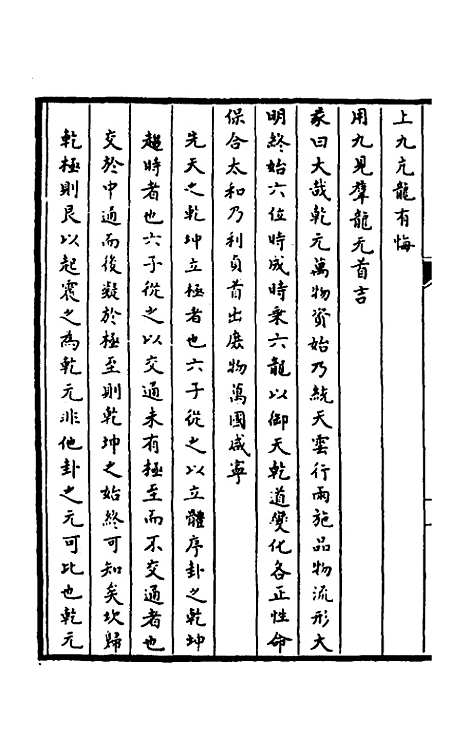 上九亢龍有悔
用九見羣龍无首吉
彖曰大哉乾元萬物資始乃統天雲行雨施品物流形大
明終始六位時成時乘六龍以御天乾道變化各正性命
保合太和乃利貞首出庶物萬國咸寧
先天之乾坤立極者也六子從之以立體序卦之乾坤
趨時者也六子從之以交通未有極至而不交通者也
交於中通而後凝於極至則乾坤之始終可知矣坎歸
乾極則艮以起震之為乾元非他卦之元可比也乾元